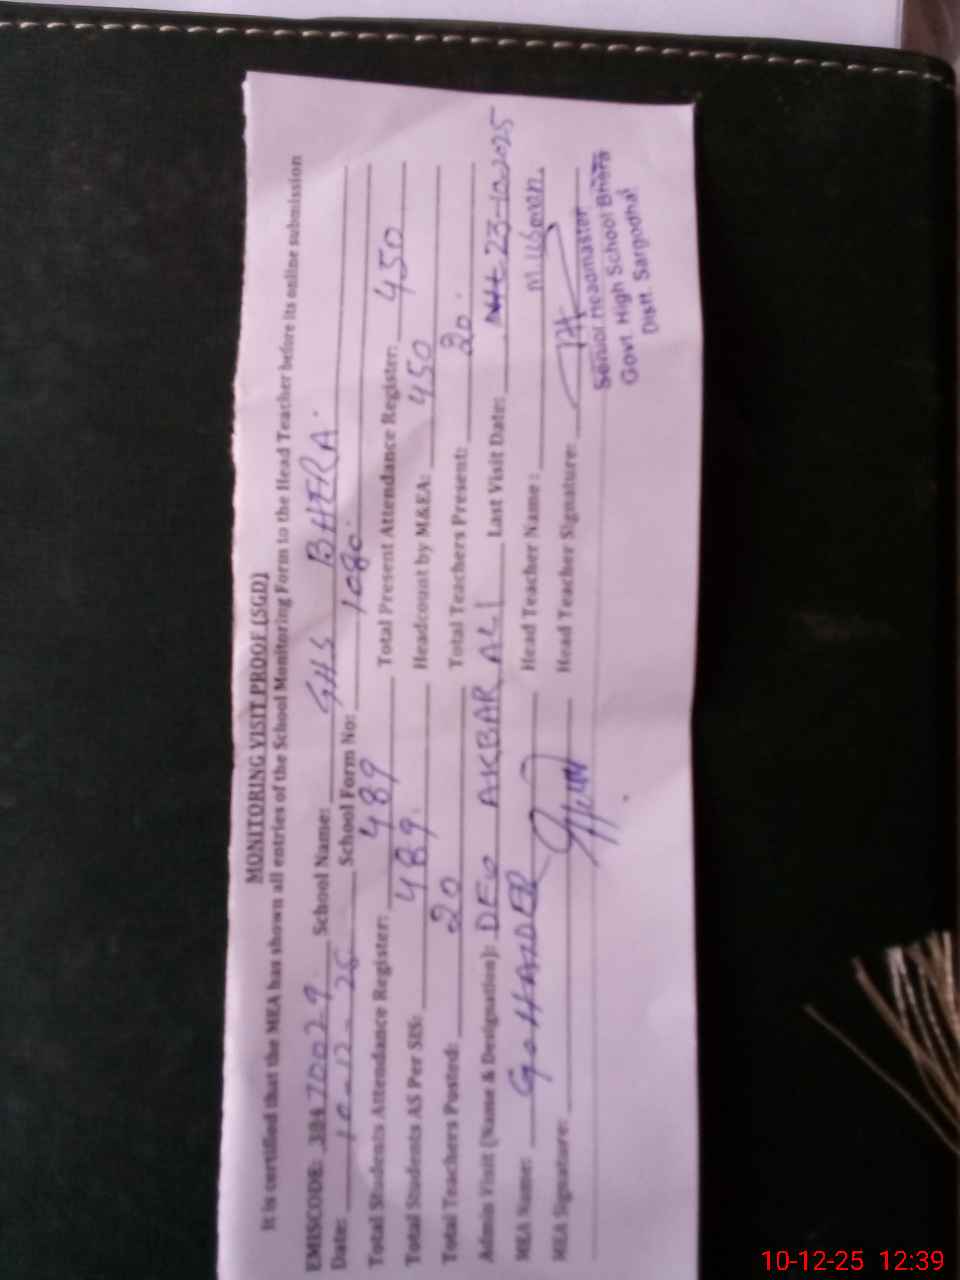 MONITORING VISIT PROOF (SGD)
It is certified that the MEA has shown all entries of the School Monitoring Form to the Head Teacher before its online submission
EMISCODE: 38470029 School Name: GHS BHERA.
Date: 10-12-25 School Form No: 1080.
Total Students Attendance Register: 489 Total Present Attendance Register: 450
Total Students AS Per SIS: 489. Headcount by M&EA: 450
Total Teachers Posted: 20 Total Teachers Present: 20.
Admin Visit (Name & Designation): DEO AKBAR ALI Last Visit Date: 23-10-2025
MEA Name: Head Teacher Name:
MEA Signature: Head Teacher Signature:
Senior Headmaster
Govt. High School Bhera
Distt. Sargodha
10-12-25 12:39